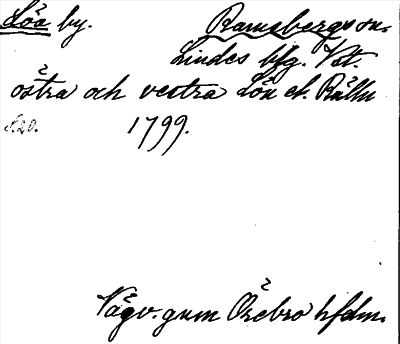 Löa by. Ramsbergs sn.
Lindes bfg. Vst.
östra och vestra Löa ch. Rällu
f.20. 1799.
Vägv. gum Örebro hfdm.